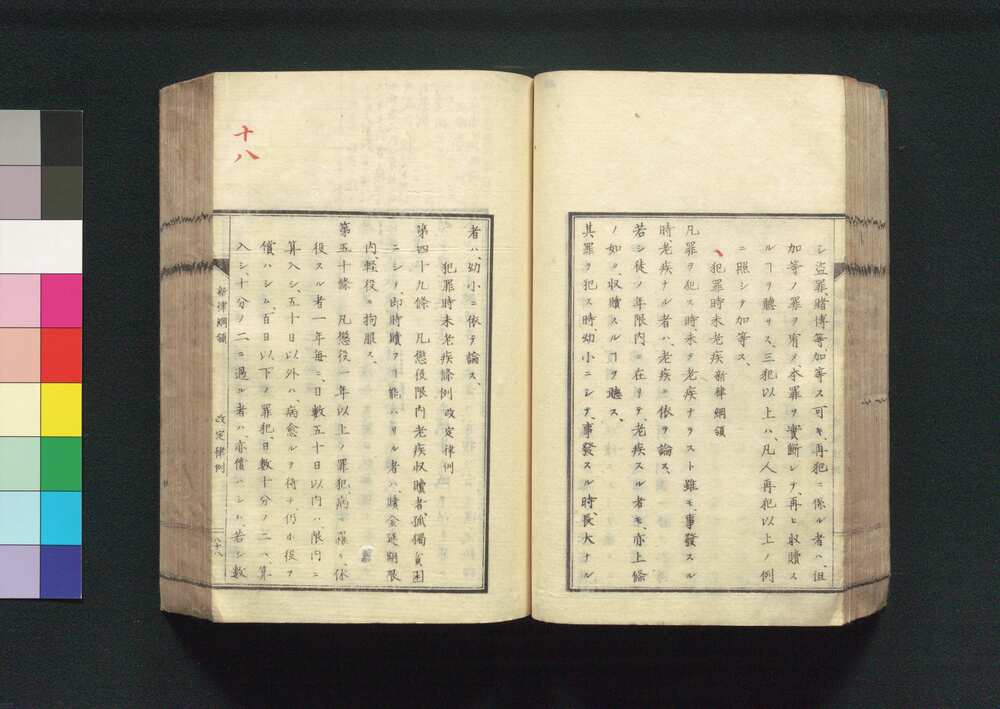 シ盗罪、賭博等、加等ス可キ、再犯ニ係ル者ハ、但
加等ノ罪ヲ宥メ、本罪ヲ實断シテ、再ヒ収贖ス
ルヿヲ聴サス、三犯以上ハ、凡人再犯以上ノ例
ニ照シテ加等ス、
犯罪時未老疾 新律綱領
凡罪ヲ犯ス時、未タ老疾ナラスト雖モ、事發スル
時老疾ナル者ハ、老疾ニ依テ論ス、
若シ徒ノ年限内ニ在リテ、老疾スル者モ、亦上條
ノ如ク、収贖スルヿヲ聴ス、
其罪ヲ犯ス時、幼小ニシテ、事發スル時、長大ナル
者ハ、幼小ニ依テ論ス、
犯罪時未老疾條例 改定律例
第四十九條 凡懲役限内老疾収贖者、孤獨貧困
ニシテ、即時贖フヿ能ハサル者ハ、贖金延期限
内、軽役ニ拘服ス、
第五十條 凡懲役一年以上ノ罪犯、病ニ罹リ、休
役スル者、一年毎ニ、日數五十日以内ハ、限内ニ
算入シ、五十日以外ハ、病愈ルヲ待テ、仍ホ役ヲ
償ハシム、百日以下ノ罪犯、日數十分ノ二ハ、算
入シ、十分ノ二ニ過ル者ハ、亦償ハシム、若シ數
新律綱領 改定律例
八十八
十八